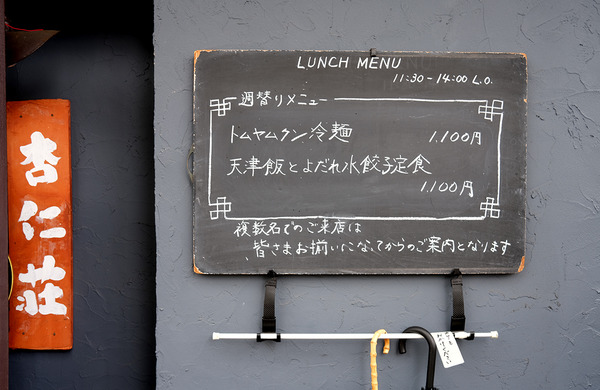 杏仁荘
LUNCH MENU
11:30-14:00 L.O.
週替りメニュー
トムヤムクン冷麺 1,100円
天津飯とよだれ水餃子定食
1,100円
複数名でのご来店は
皆さまお揃いになってからのご案内となります